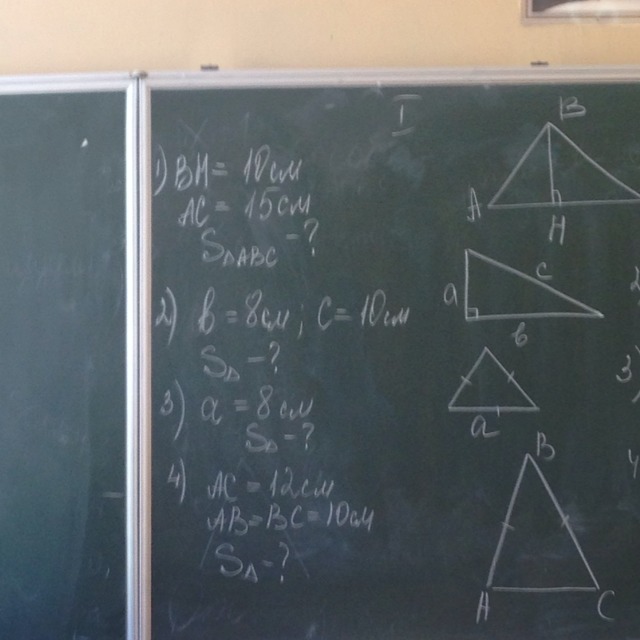 I
1) BH = 10 см
AC = 15 см
S△ABC - ?
2) b = 8 см; c = 10 см
S△ - ?
3) a = 8 см
S△ - ?
4) AC = 12 см
AB = BC = 10 см
S△ - ?
B
A
H
a
c
b
a
B
A
C
3)